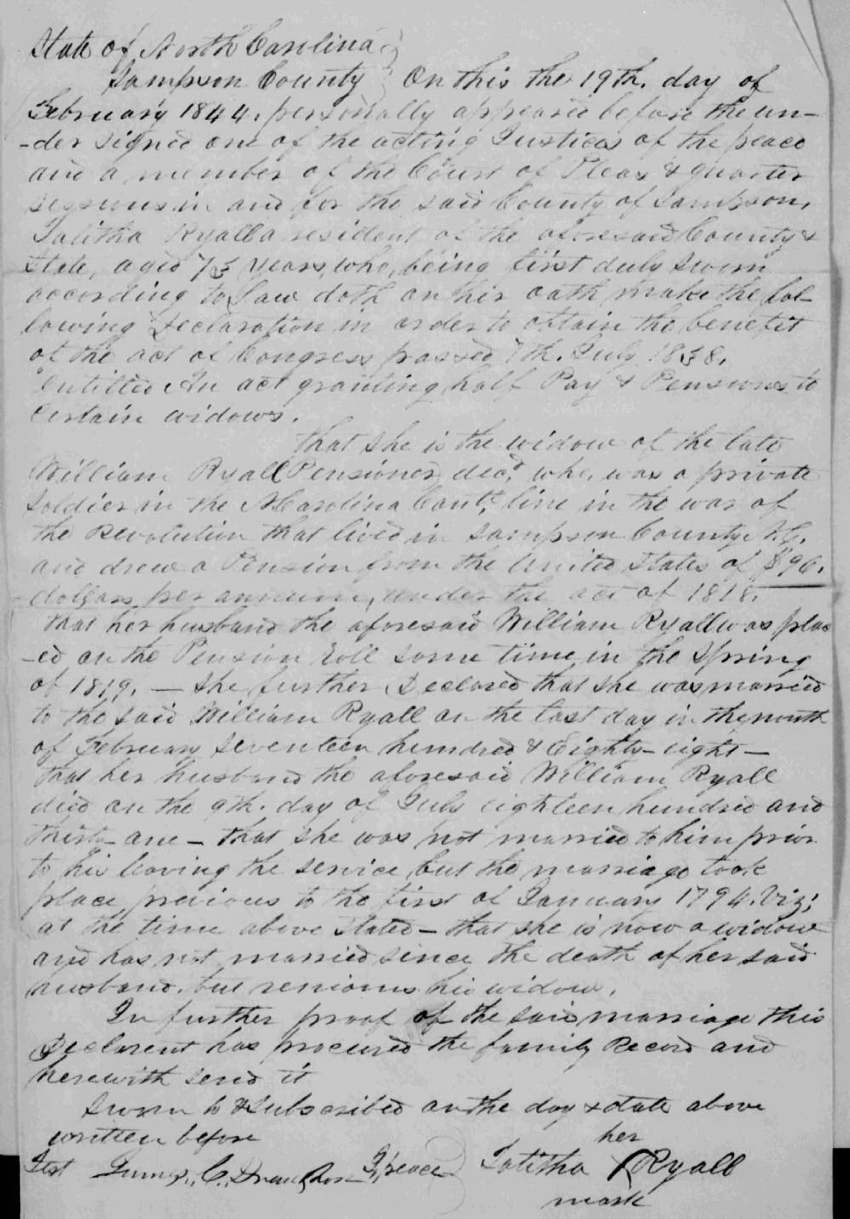 State of North Carolina
Sampson County On this the 19th. day of
February 1844. personally appeared before the un-
-der signed one of the acting Justices of the peace
and a member of the Court of Pleas & quarter
sessions in and for the said County of Sampson,
Talitha Ryall a resident of the aforesaid County &
State, aged 75 years, who, being first duly sworn
according to Law doth on her oath make the fol-
lowing Declaration in order to obtain the benefit
of the act of Congress passed 7th. July 1838.
entitled An act granting half Pay & Pensions to
certain widows.
that she is the widow of the late
William Ryall Pensioner, decd, who, was a private
Soldier in the N Carolina Contl. line in the war of
the Revolution that lived in Sampson County N.C.
and drew a Pension from the United States of $96.
dollars per annum, under the act of 1818.
that her husband the aforesaid William Ryall was plac
-ed on the Pension Roll some time in the Spring
of 1819. — She further Declared that she was married
to the said William Ryall on the last day in the month
of February Seventeen hundred & Eighty-eight —
that her husband the aforesaid William Ryall
died on the 9th. day of July eighteen hundred and
thirty-one — that she was not married to him prior
to his leaving the service, but the marriage took
place, precious to the first of January 1794. Viz;
at the time above stated — that she is now a widow
and has not married since the death of her said
husband. but remions his widow.
In further proof of the said marriage this
Declarent has procured the family Record and
herewith send it
Sworn to & Subscribed on the day & date above
written before
her
Test C. J. peace Talitha X Ryall
mark